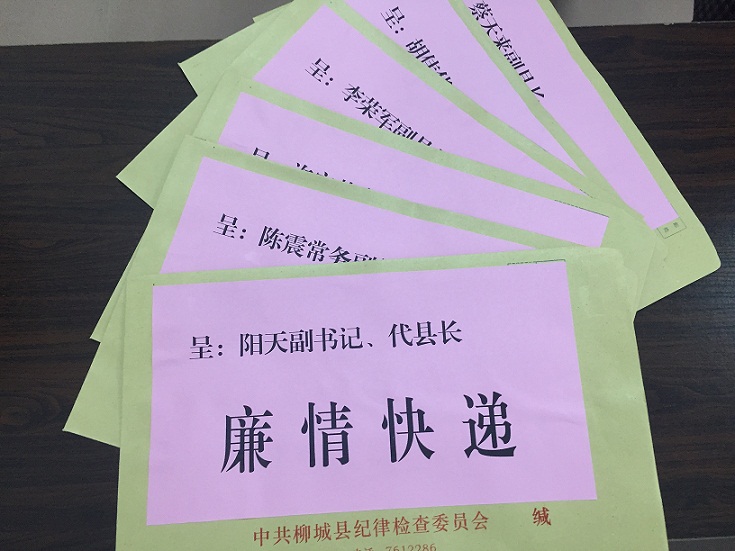 蔡天来副县长
呈：胡佳
呈：李荣军副县
呈：
呈：陈震常务副
呈：阳天副书记、代县长
廉情快递
中共柳城县纪律检查委员会 缄
7612286